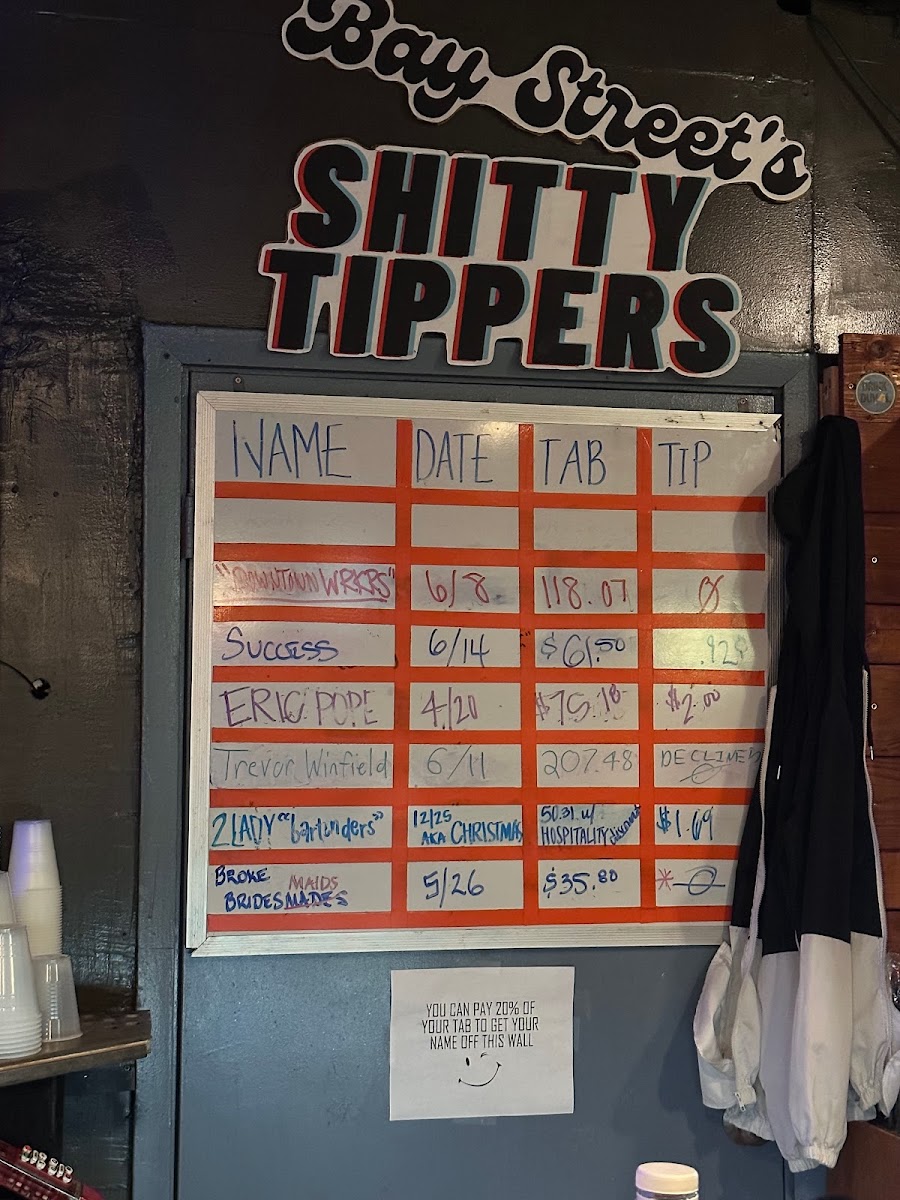 Bay Street's
SHITTY
TIPPERS
NAME DATE TAB TIP
"DOWNTOWN WRKRS" 6/8 118.07 Ø
SUCCESS 6/14 $61.50
ERIC POPE 4/20 $75.18 $2.00
Trevor Winfield 6/11 207.48 DECLINED
2 LADY "bartenders" 12/25 AKA CHRISTMAS 50.31 w/ HOSPITALITY discount $1.69
BROKE BRIDESMADES MAIDS 5/26 $35.80 * Ø
YOU CAN PAY 20% OF
YOUR TAB TO GET YOUR
NAME OFF THIS WALL